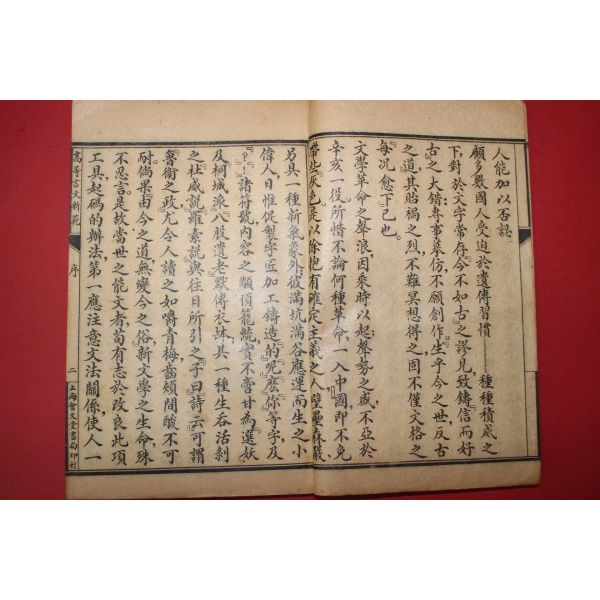 人能加以否認
顧多數國人受迫於遺傳習慣⋯⋯種種積威之
下對於文字常存『今不如古』之謬見致鑄『信而好
古』之大錯專事摹仿不願創作『生乎今之世反古
之道』其貽禍之烈不難冥想得之固不僅文格之
『每况愈下』已也
文學革命之聲浪因乘時以起聲勢之盛不亞於
辛亥一役所惜不論何種革命一入中國即不免
帶些『灰色』是以除抱有確定主義之人壁壘森嚴
另具一種新氣象外彼滿坑滿谷應運而生之小
偉人日惟促製字匠加工鑄造『的』『呢』『麽』『你』等字及
『？』『！』諸符號內容之顢頇籠統實不啻甘為『選妖』
及『桐城派』『八股遺老』默傳衣缽其一種生吞活剝
之『杜威說』『羅素說』與往日所引之『子曰』『詩云』可謂
『魯衛之政』尤令人讀之如嚼青梅齒頰間酸不可
耐倘果由今之道無變今之俗新文學之生命殊
不忍言是故當世之能文者苟有志於改良此項
工具起碼的辦法第一應注意文法關係使人一
高等言文新範
序
二
上海會文堂書局印行